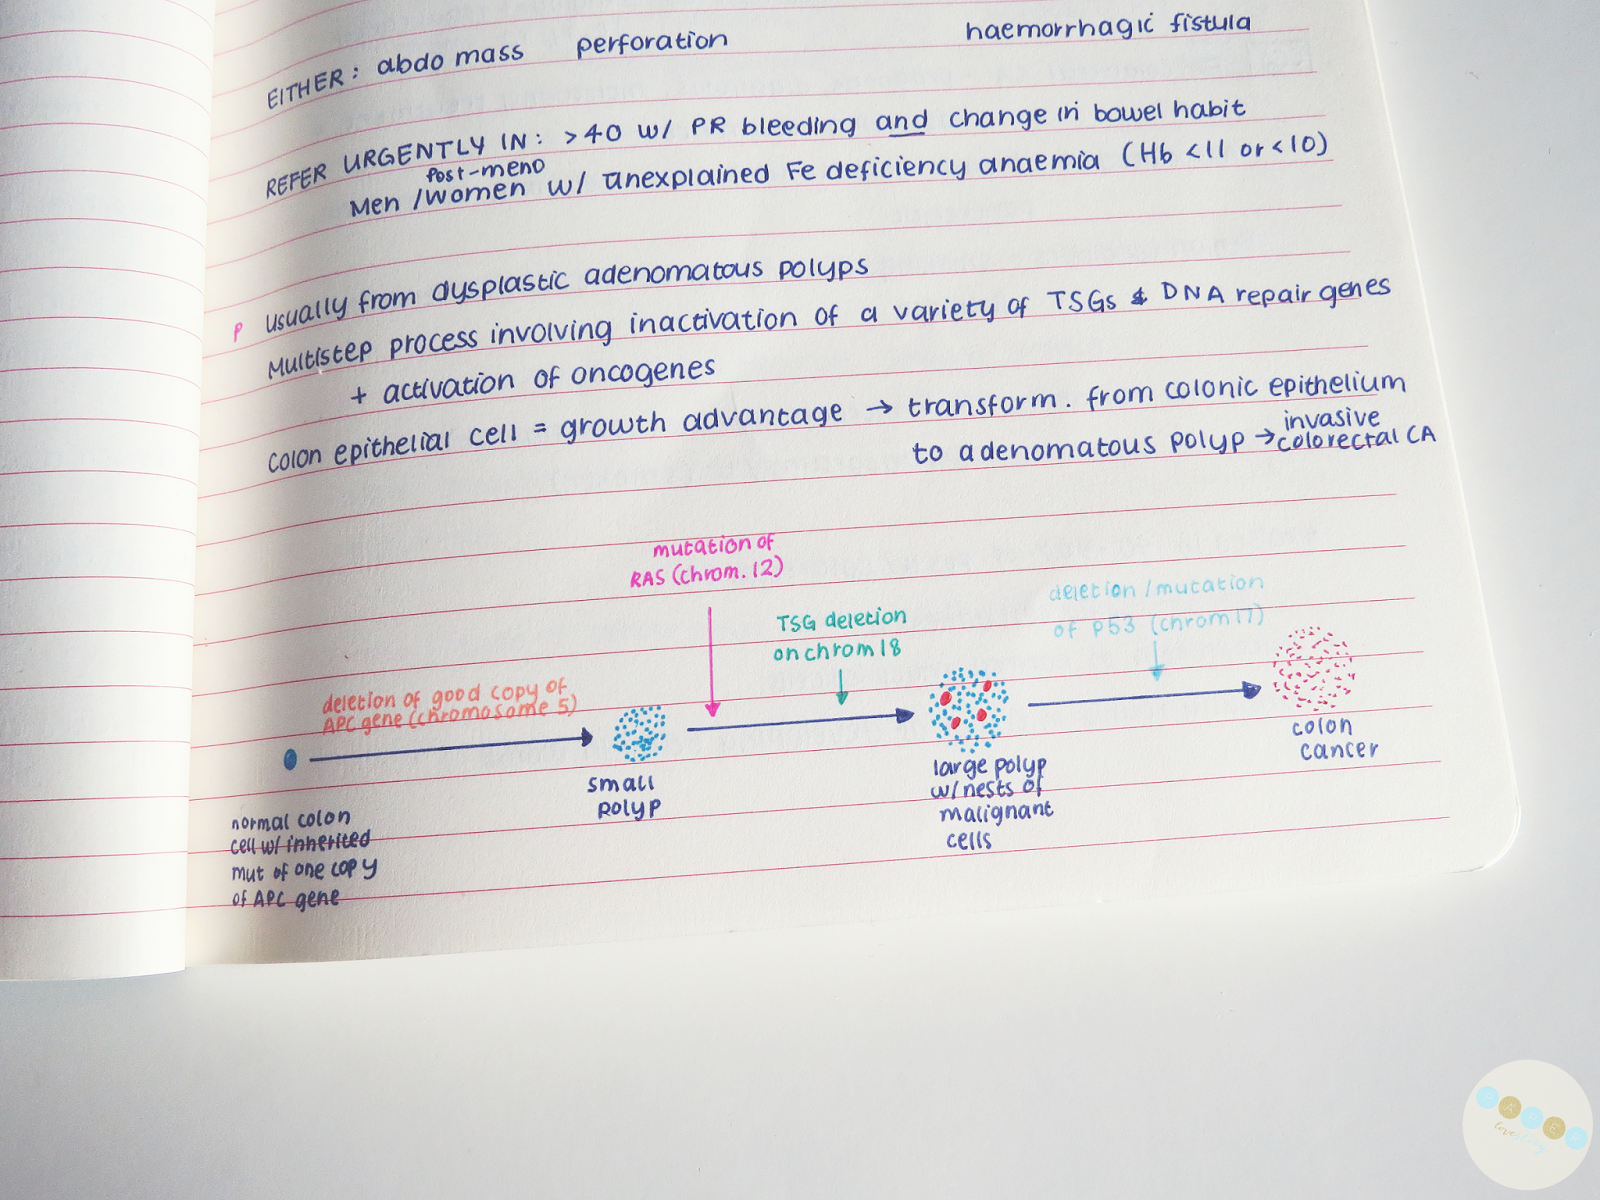 EITHER: abdo mass perforation haemorrhagic fistula
REFER URGENTLY IN: >40 w/ PR bleeding and change in bowel habit
post-meno
Men /women w/ unexplained Fe deficiency anaemia (Hb <11 or <10)
P usually from dysplastic adenomatous polyps
Multistep process involving inactivation of a variety of TSGs & DNA repair genes
+ activation of oncogenes
colon epithelial cell = growth advantage → transform. from colonic epithelium
to adenomatous polyp → invasive
colorectal CA
mutation of
RAS (chrom. 12)
TSG deletion
on chrom 18
deletion/mutation
of P53 (chrom 17)
deletion of good copy of
APC gene (chromosome 5)
small
polyp
large polyp
w/ nests of
malignant
cells
colon
cancer
normal colon
cell w/ inherited
mut of one copy
of APC gene